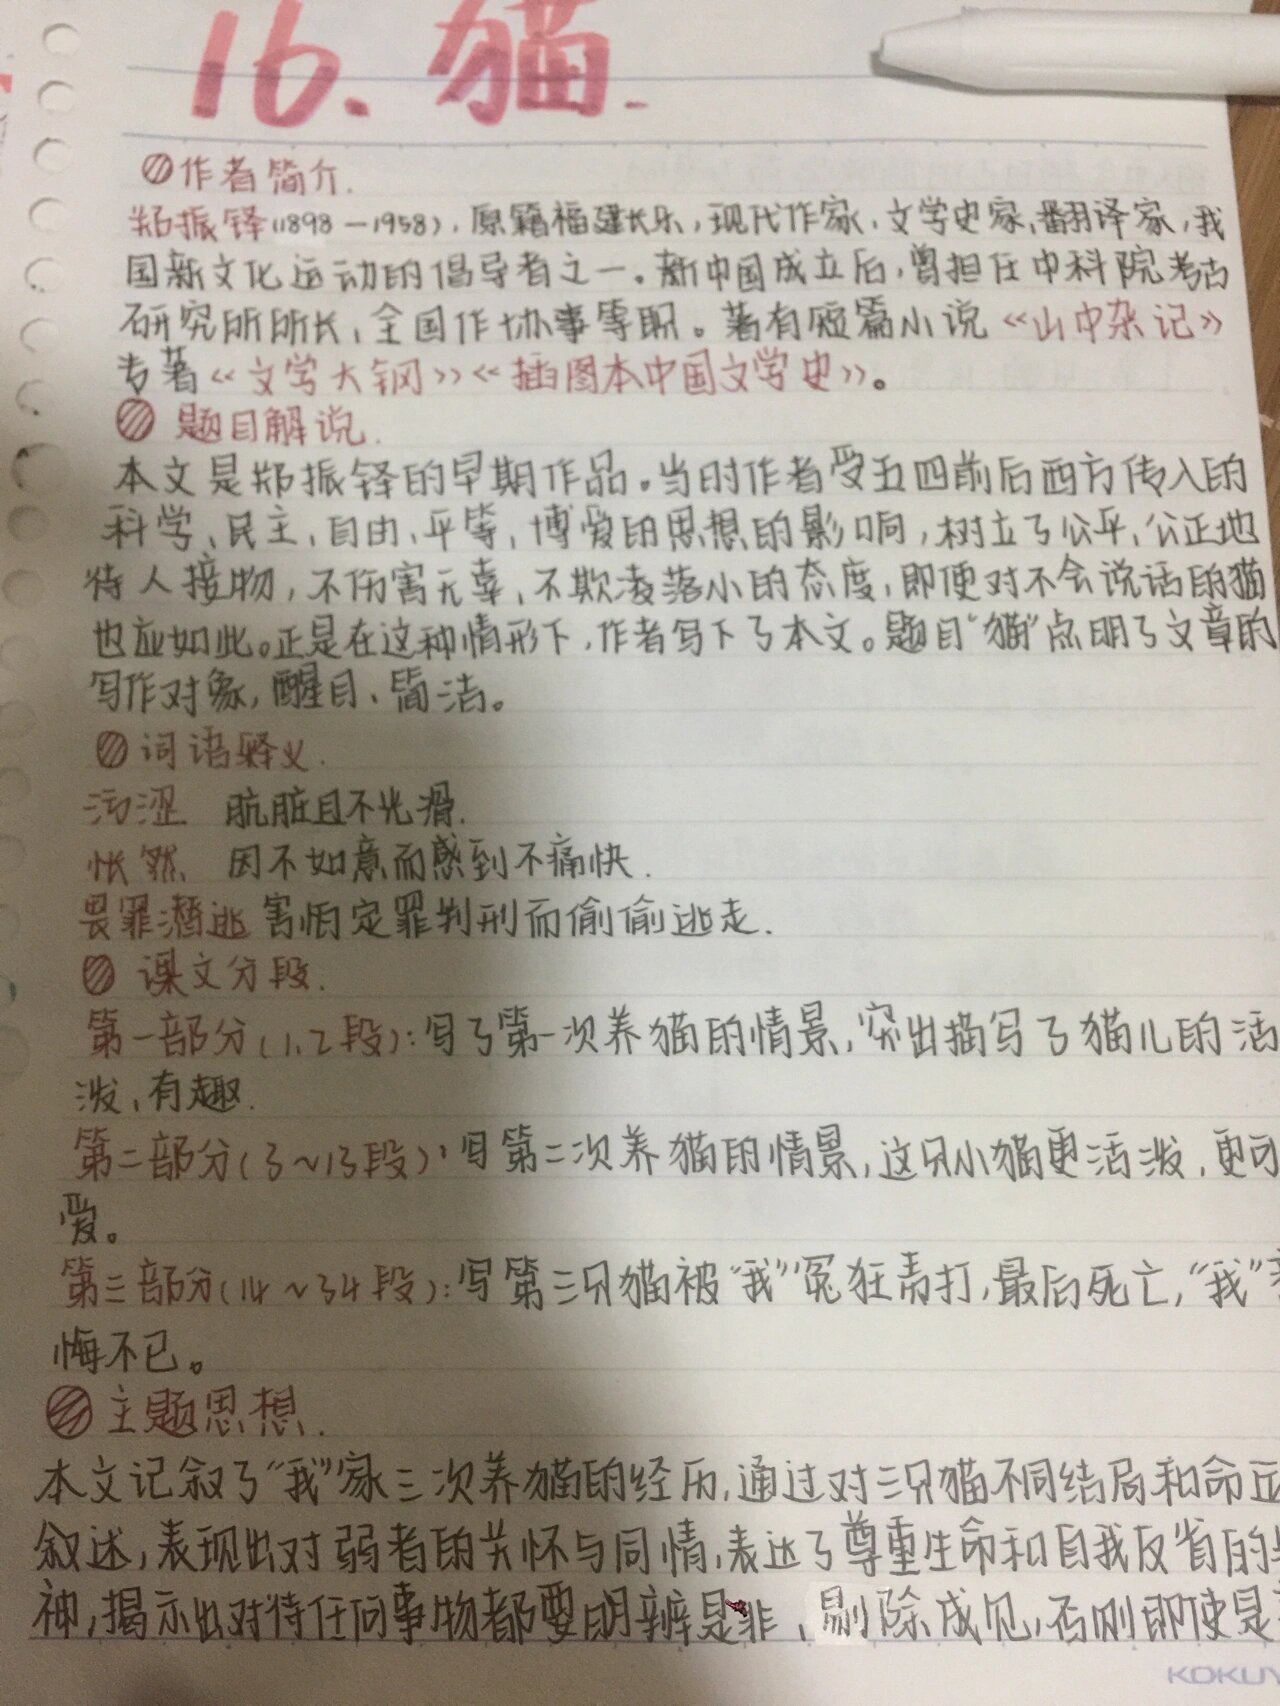 16.猫.
作者简介.
郑振铎(1898—1958),原籍福建长乐,现代作家、文学史家、翻译家,我
国新文化运动的倡导者之一。新中国成立后,曾担任中科院考古
研究所所长,全国作协事等职。著有短篇小说《山中杂记》
专著《文学大钢》《插图本中国文学史》。
题目解说.
本文是郑振铎的早期作品。当时作者受五四前后西方传入的
科学、民主、自由、平等,博爱的思想的影响,树立了公平,公正地
待人接物,不伤害无辜,不欺凌落小的态度,即使对不会说话的猫
也应如此。正是在这种情形下,作者写下了本文。题目“猫”点明了文章的
写作对象,醒目、简洁。
词语释义.
污涩 肮脏且不光滑.
怅然 因不如意而感到不痛快.
畏罪潜逃 害怕定罪判刑而偷偷逃走.
课文分段.
第一部分(1,2段):写了第一次养猫的情景,突出描写了猫儿的活
泼,有趣.
第二部分(3~13段):写第二次养猫的情景,这只小猫更活泼,更可
爱。
第三部分(14~34段):写第三只猫被“我”冤狂毒打,最后死亡,“我”
悔不已。
主题思想.
本文记叙了“我”家三次养猫的经历,通过对三只猫不同结局和命运
叙述,表现出对弱者的关怀与同情,表达了尊重生命和自我反省的
神,揭示出对待任何事物都要明辨是非,剔除成见,否则即使是
KOKUY